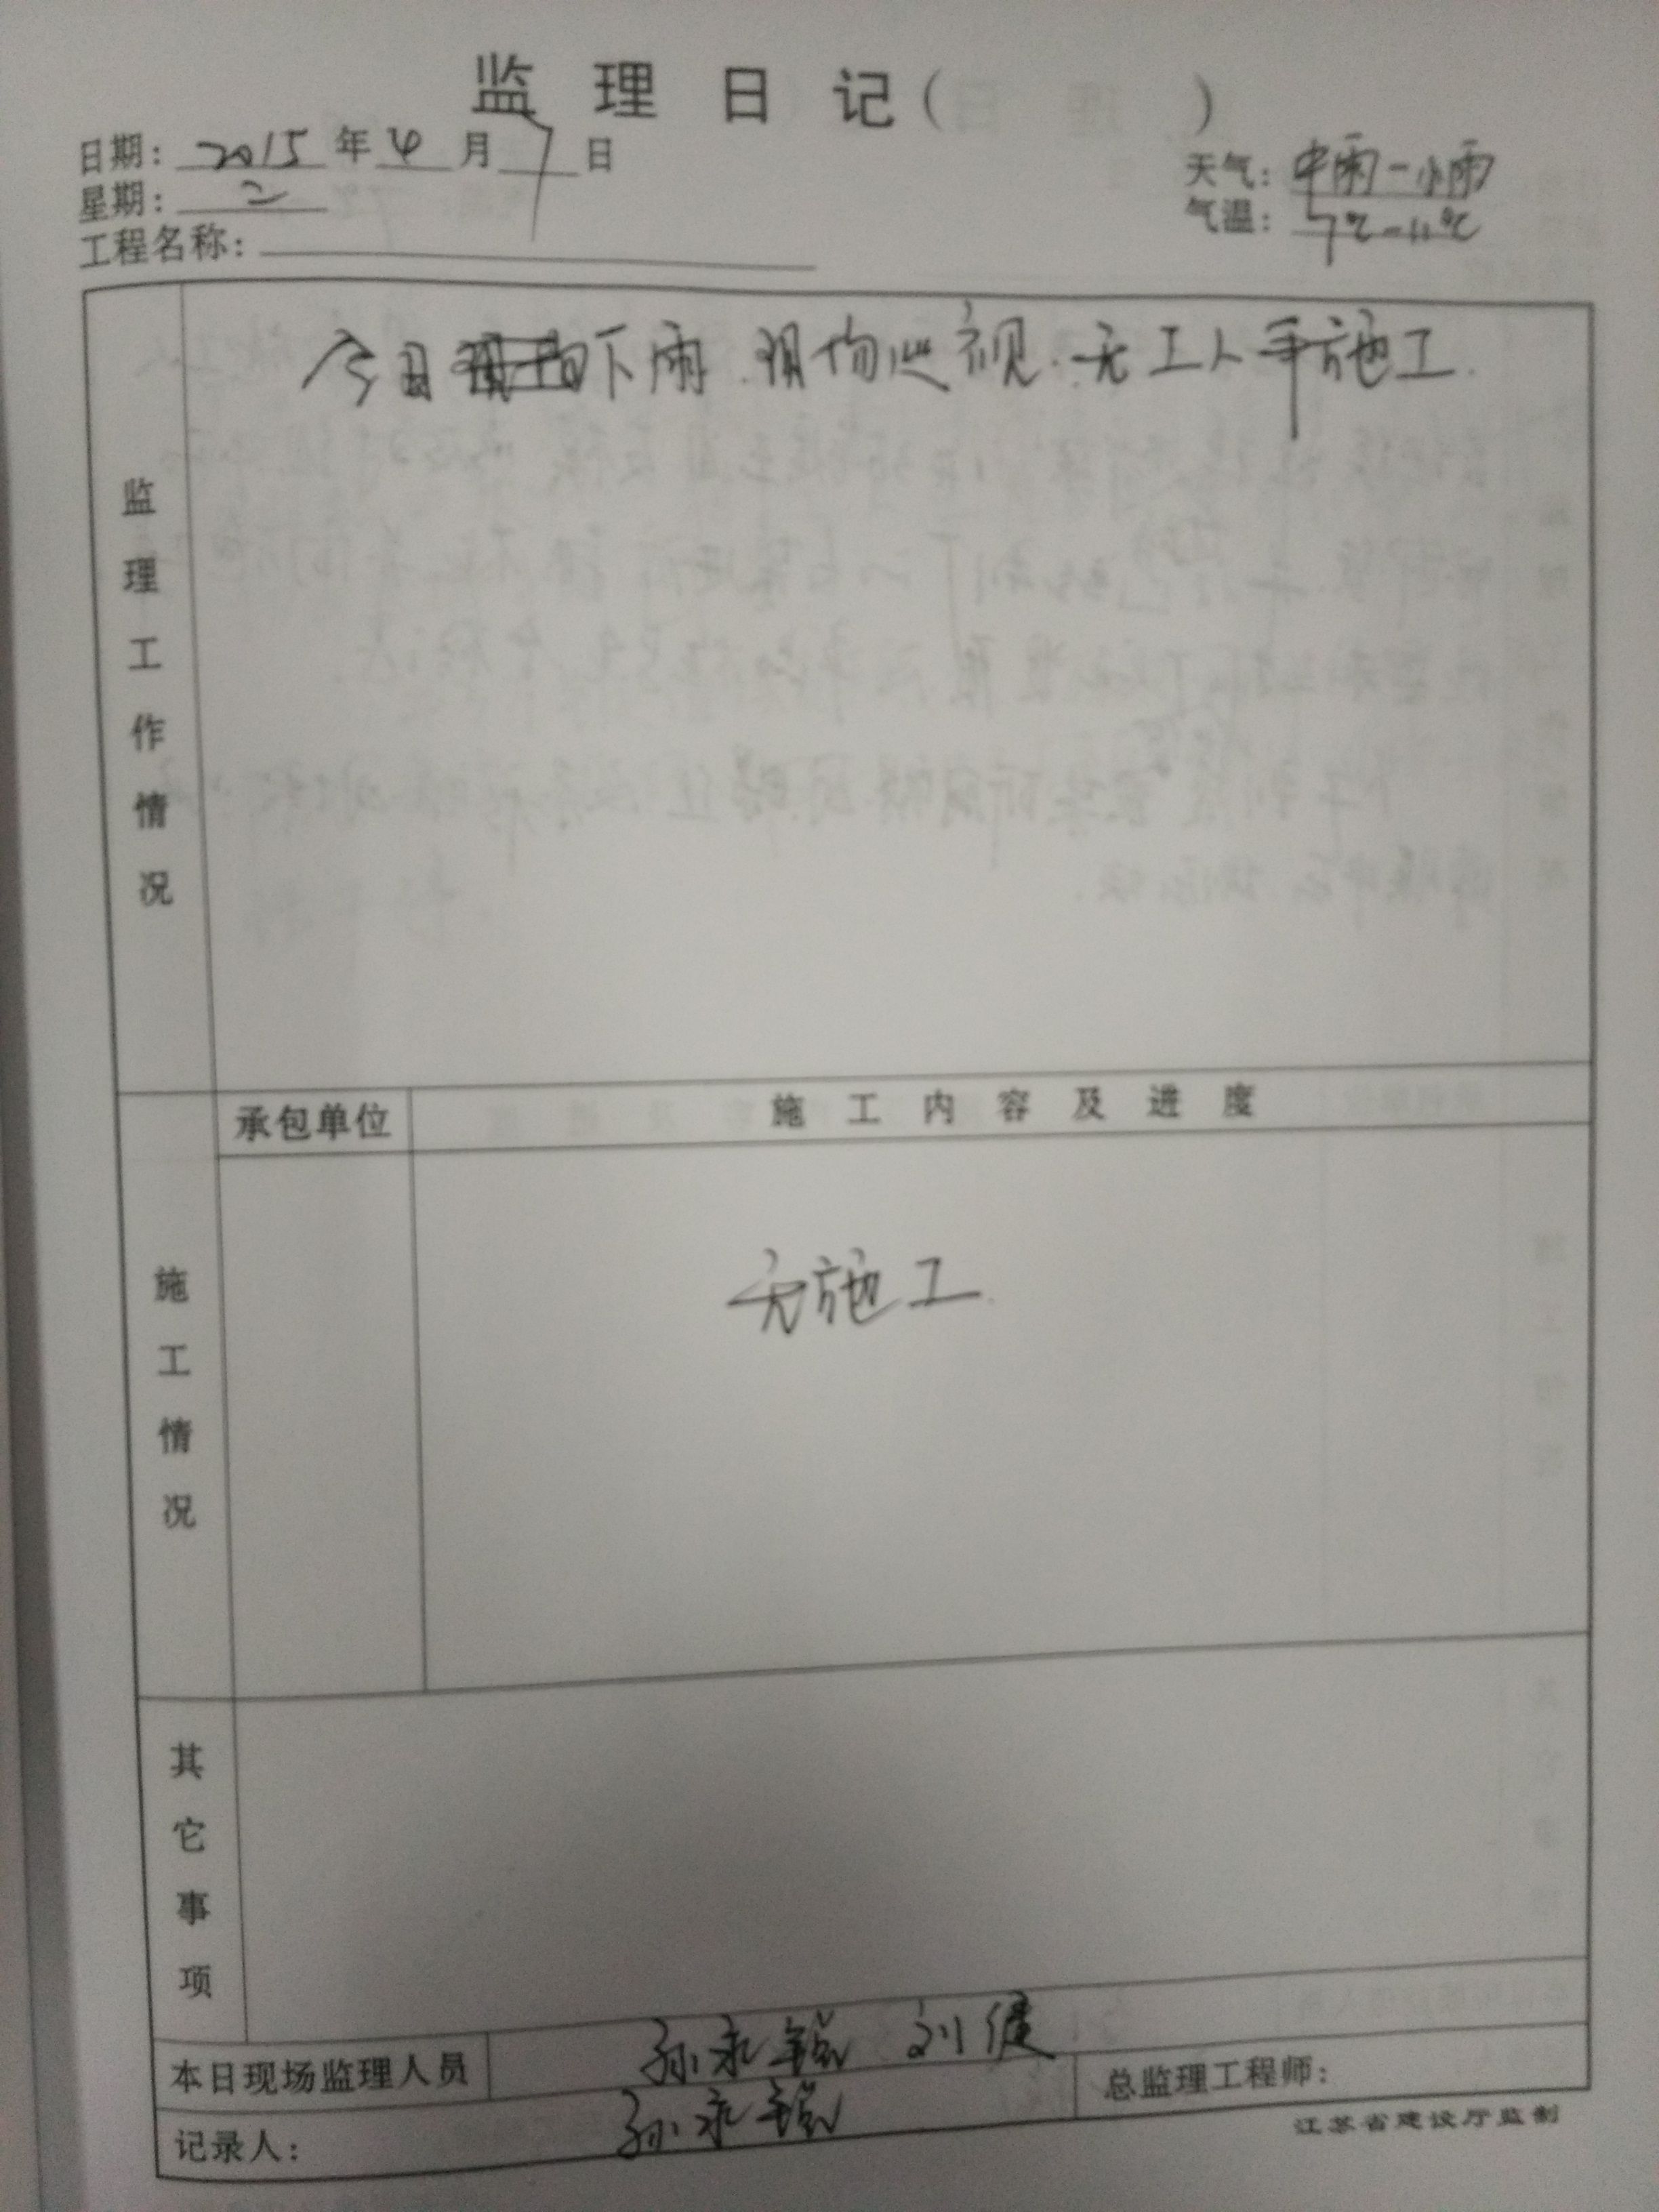 监理日记( )
日期: 2015 年 4 月 7 日
天气: 中雨-小雨
星期: 二
气温: 7℃-11℃
工程名称:
今日下雨.现场巡视.无工人施工.
监理工作情况
承包单位 施工内容及进度
施工情况
无施工.
其它事项
本日现场监理人员 孙永 刘健
总监理工程师:
记录人: 孙永
江苏省建设厅监制